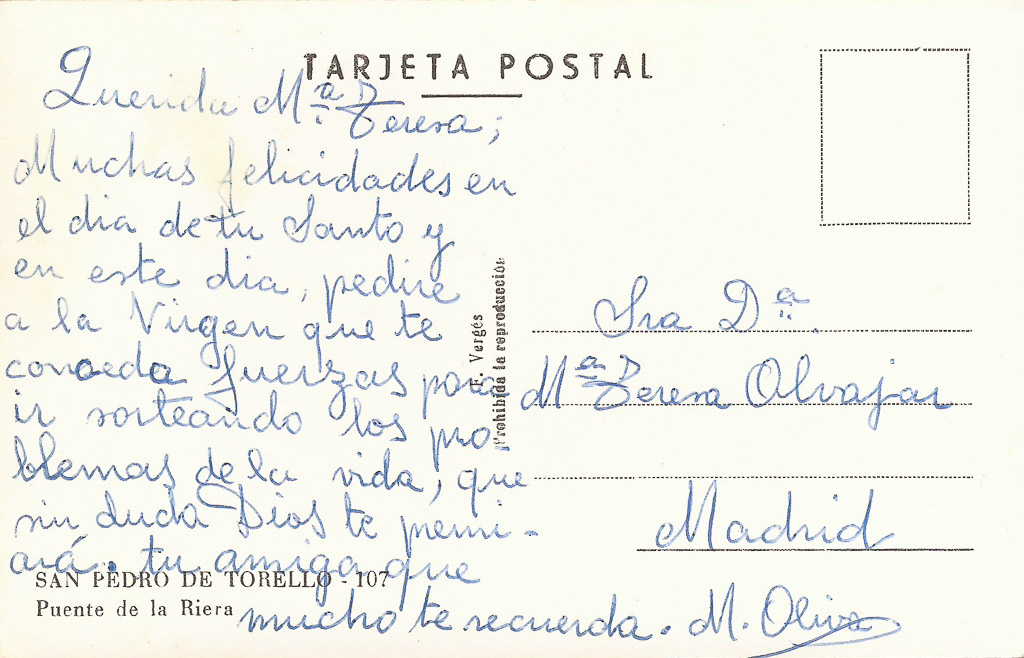 TARJETA POSTAL
Querida Mª Teresa;
Muchas felicidades en
el dia de tu Santo y
en este dia, pedire
a la Virgen que te
conceda fuerzas para
ir sorteando los pro-
blemas de la vida, que
sin duda Dios te premi-
ará. tu amiga que
mucho te recuerda. M. Oliva
SAN PEDRO DE TORELLO - 107
Puente de la Riera
F. Vergés
Prohibida la reproducción
Sra Dª.
Mª Teresa Olvajar
Madrid